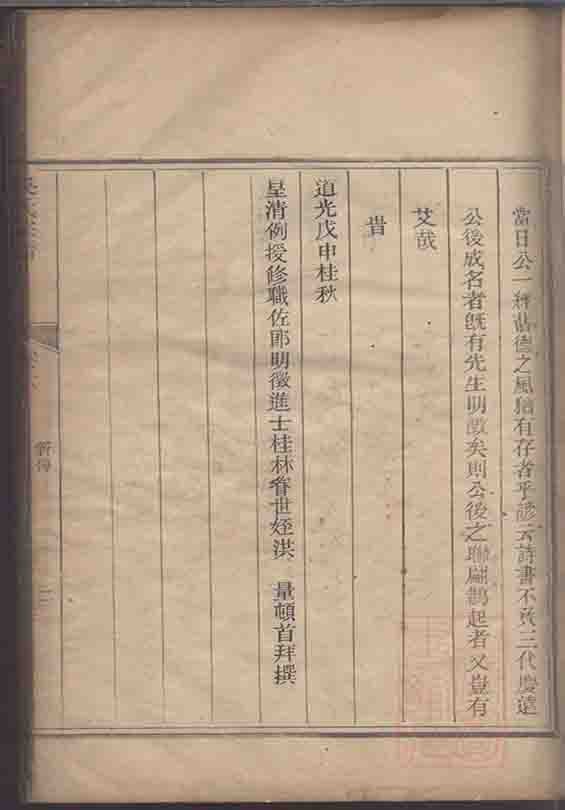 當日公一經舊德之風猶有存者乎諺云詩書不負三代慶遠
公後成名者既有先生明徵矣則公後之聯翩鵲起者又豈有
艾哉
旹
道光戊申桂秋
皇清例授修職佐郎明徵進士桂林眷世姪洪 量頓首拜撰